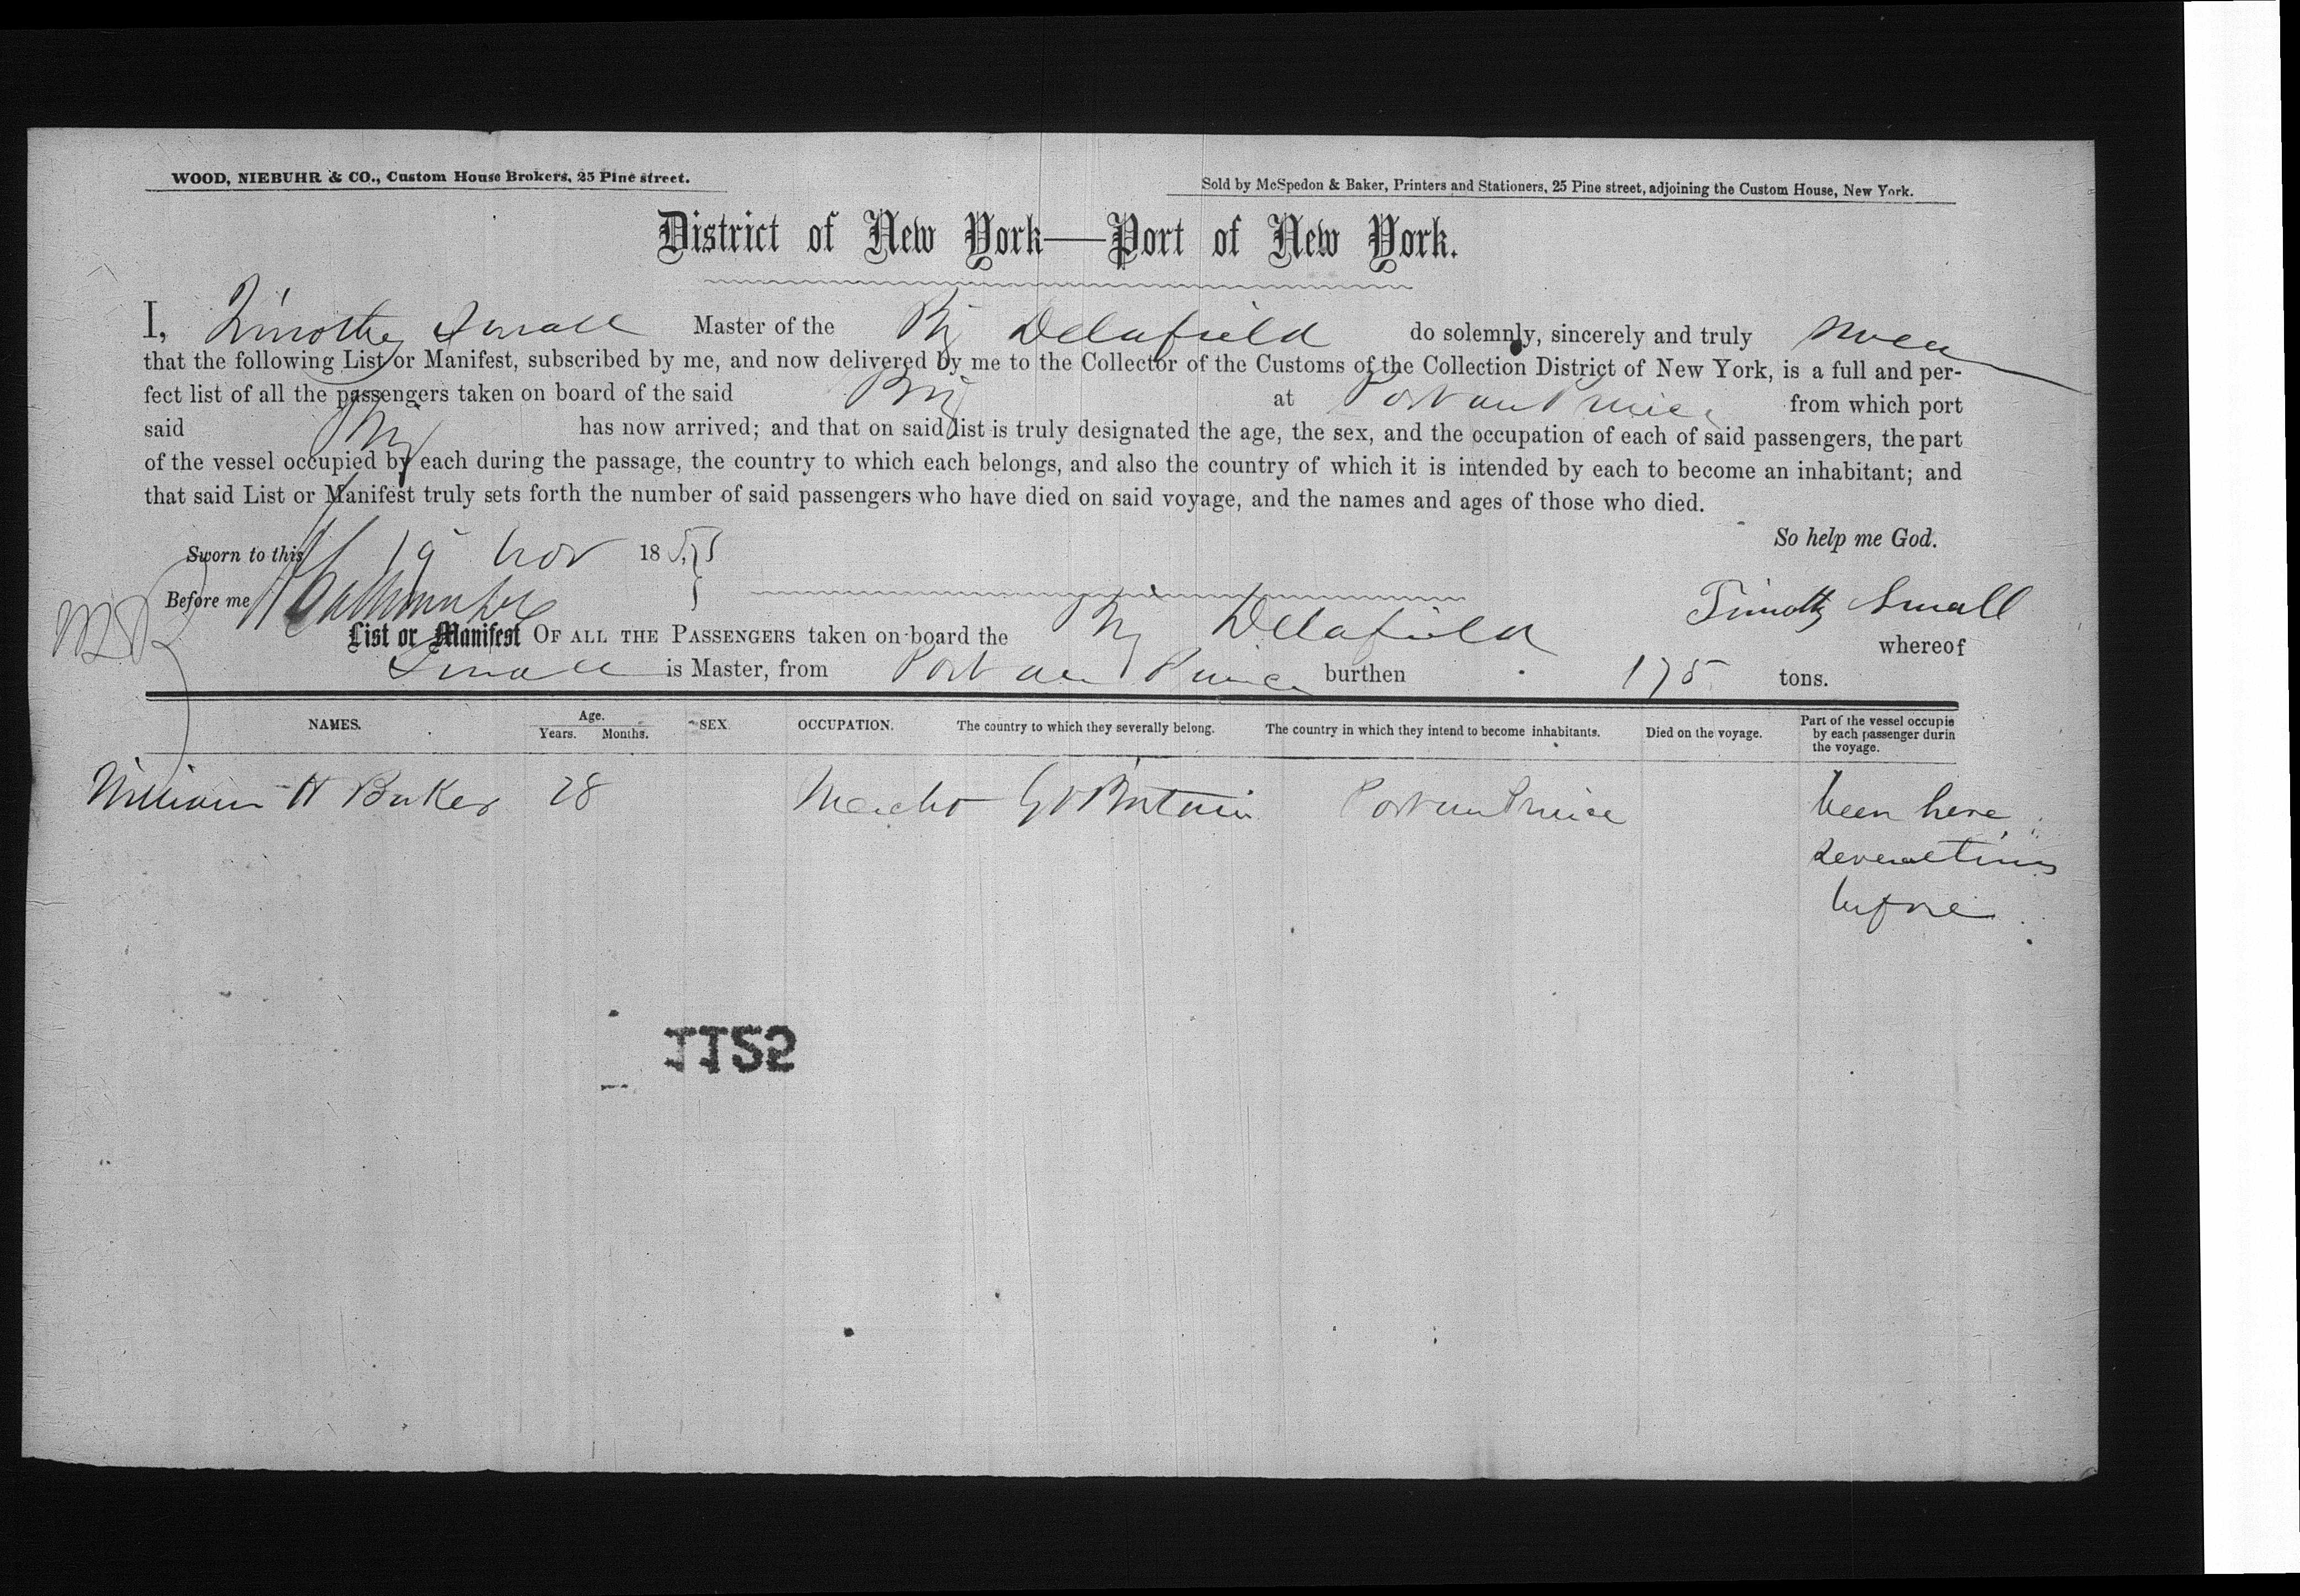 WOOD, NIEBUHR & CO., Custom House Brokers, 25 Pine street.
Sold by McSpedon & Baker, Printers and Stationers, 25 Pine street, adjoining the Custom House, New York.
District of New York—Port of New York.
I, Timothy Small Master of the Brig Delafield do solemnly, sincerely and truly swear
that the following List or Manifest, subscribed by me, and now delivered by me to the Collector of the Customs of the Collection District of New York, is a full and per-
fect list of all the passengers taken on board of the said Brig at Port au Prince from which port
said Brig has now arrived; and that on said list is truly designated the age, the sex, and the occupation of each of said passengers, the part
of the vessel occupied by each during the passage, the country to which each belongs, and also the country of which it is intended by each to become an inhabitant; and
that said List or Manifest truly sets forth the number of said passengers who have died on said voyage, and the names and ages of those who died.
So help me God.
Sworn to this 19 Nov 1855
Before me
Timothy Small
List or Manifest OF ALL THE PASSENGERS taken on board the Brig Delafield whereof
Small is Master, from Port au Prince burthen 175 tons.
NAMES. Age. Years. Months. SEX. OCCUPATION. The country to which they severally belong. The country in which they intend to become inhabitants. Died on the voyage. Part of the vessel occupie by each passenger durin the voyage.
William H Baker 28 Mercht Gt Britain Port au Prince been here
several times
before